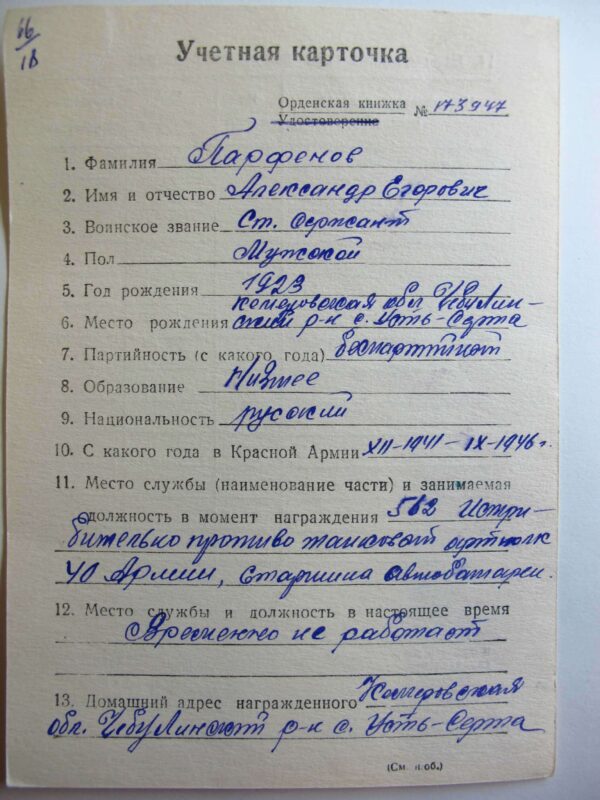 66/18
Учетная карточка
Орденская книжка № 173947
Удостоверение
1. Фамилия Парфенов
2. Имя и отчество Александр Егорович
3. Воинское звание Ст. сержант
4. Пол Мужской
5. Год рождения 1923
Кемеровская обл Чебулин-
6. Место рождения ский р-н с. Усть-Серта
7. Партийность (с какого года) беспартийный
8. Образование Низшее
9. Национальность русский
10. С какого года в Красной Армии XII-1941 – IX-1946 г.
11. Место службы (наименование части) и занимаемая
должность в момент награждения 562 Истри-
бительно противо танковый артполк
40 Армии, старшина автобатареи.
12. Место службы и должность в настоящее время
Временно не работает
13. Домашний адрес награжденного Кемеровская
обл. Чебулинский р-н с. Усть-Серта
(См. н. об.)